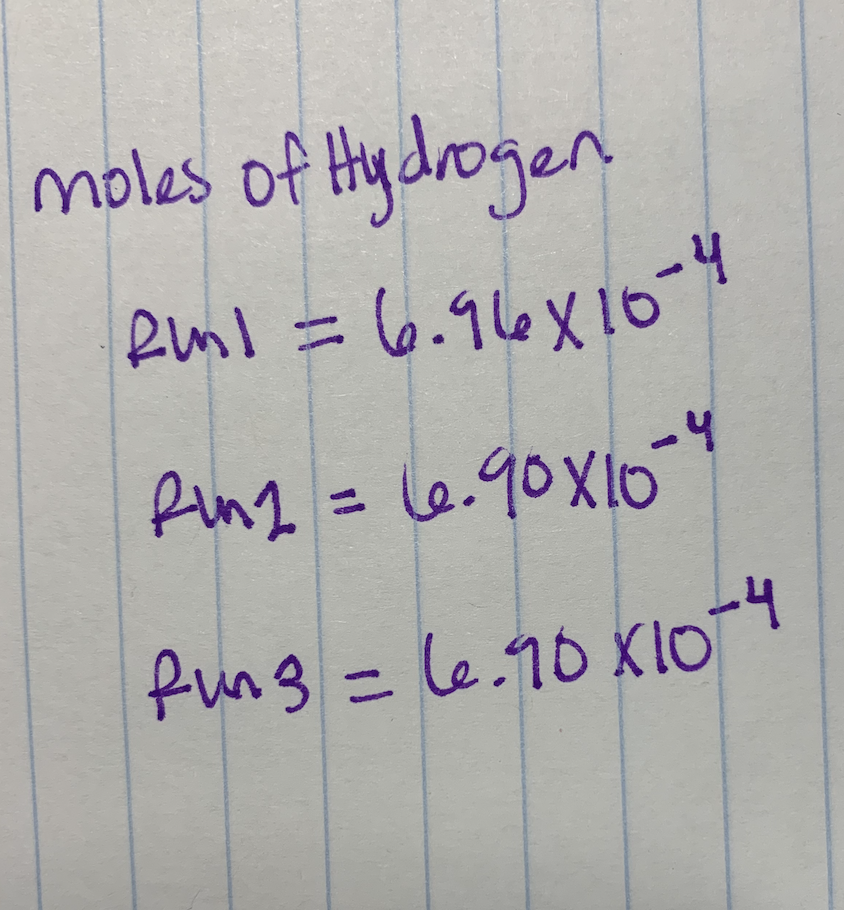 moles of Hydrogen
Run 1 = 6.96 X 10⁻⁴
Run 2 = 6.90 X 10⁻⁴
Run 3 = 6.90 X 10⁻⁴